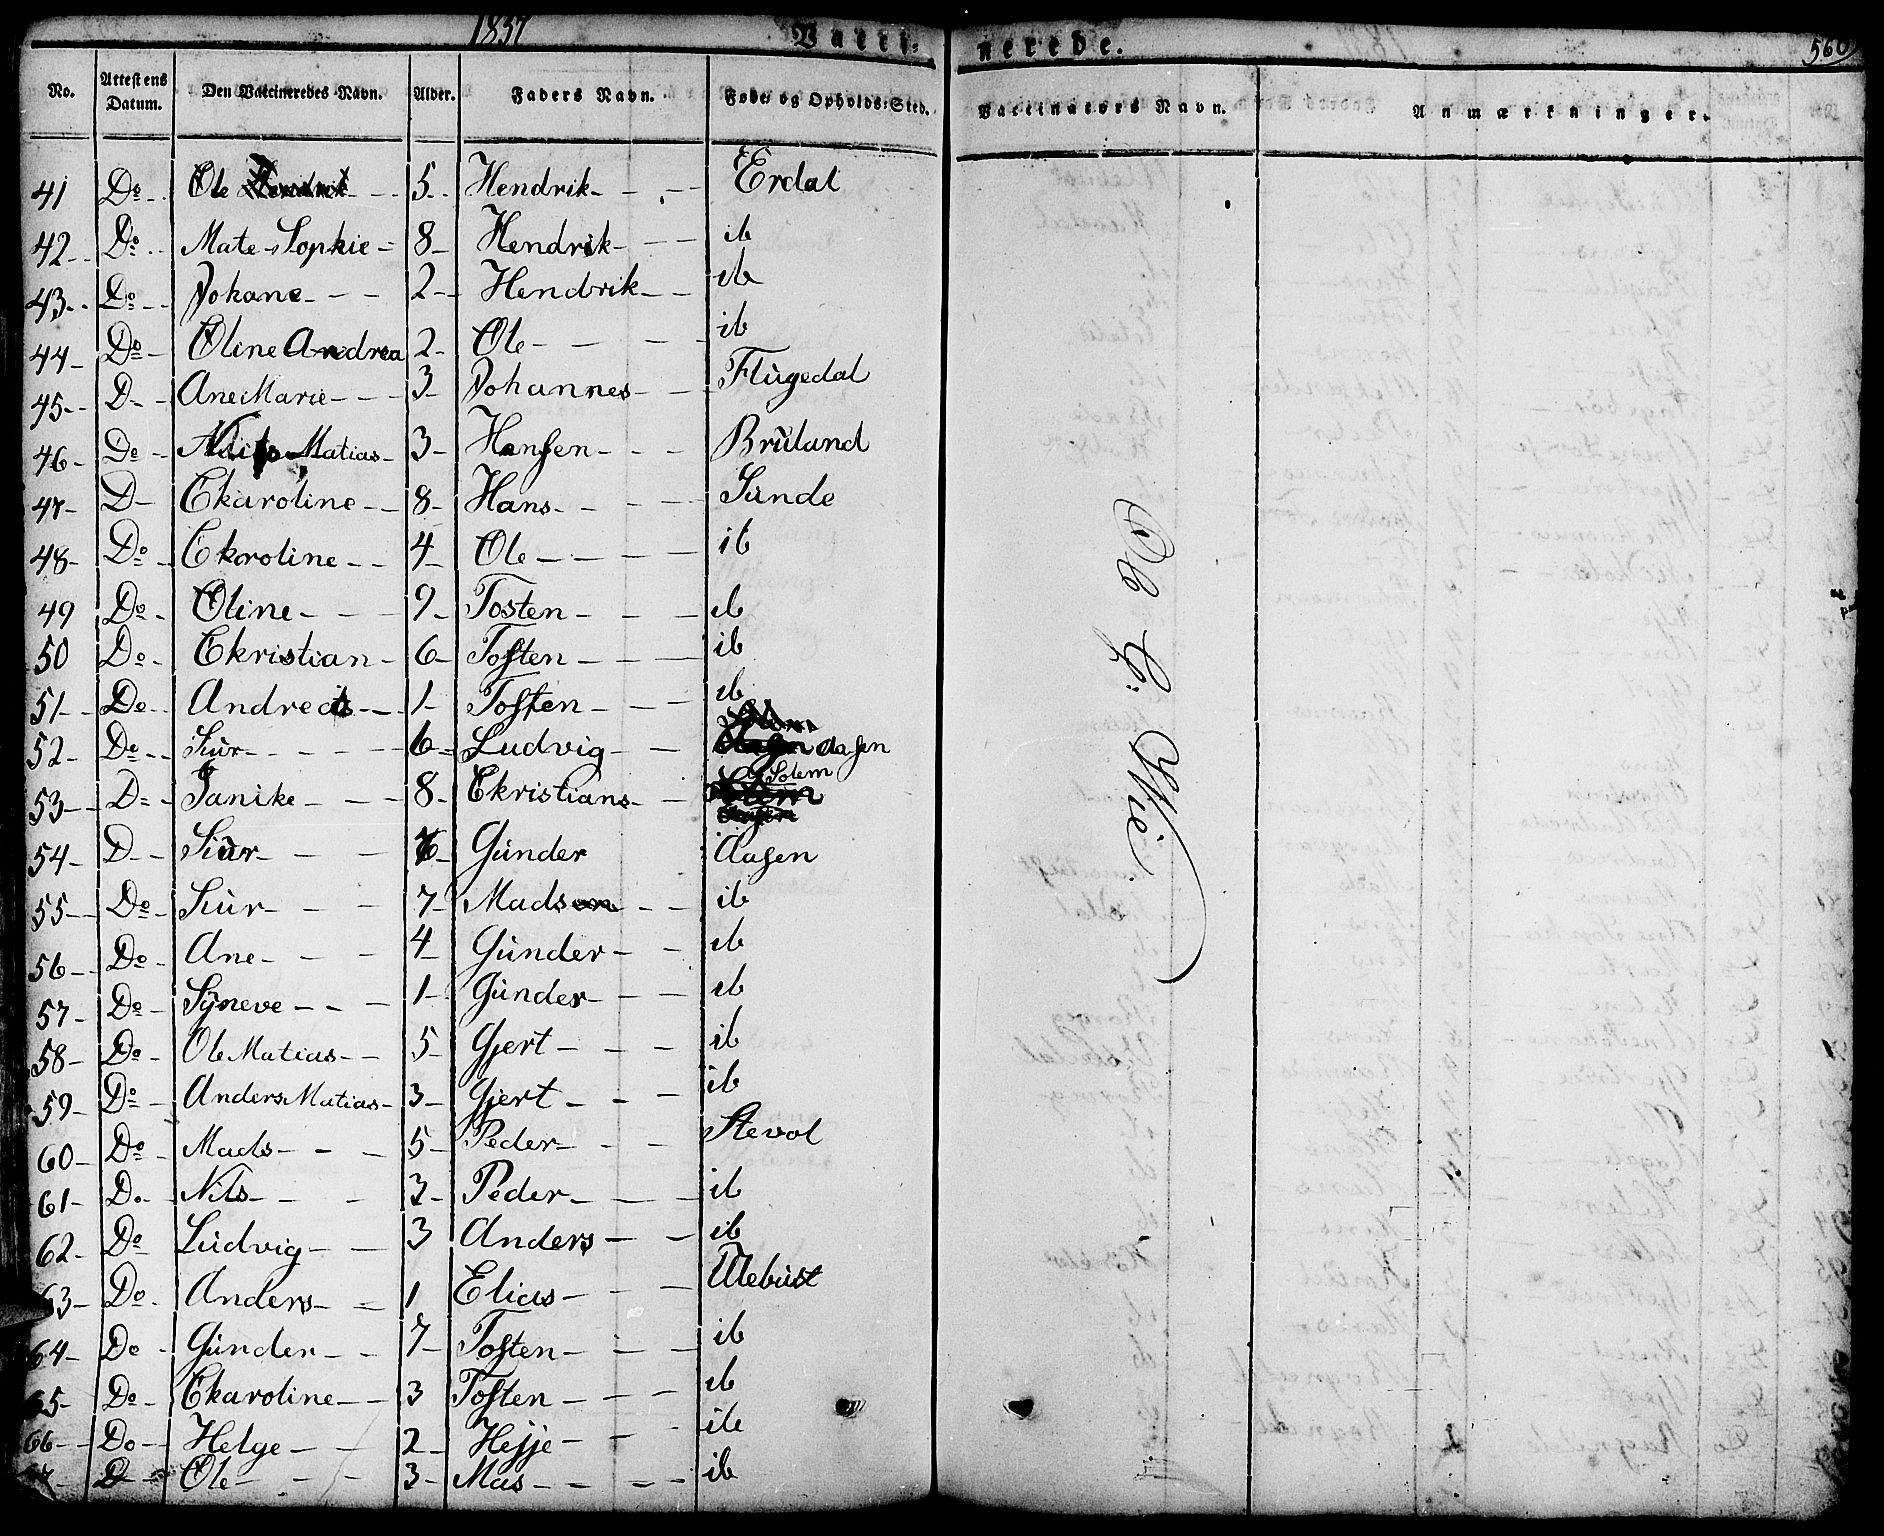 1837 Vacci- nerede. 560
No. Attestens Datum. Den Vaccineredes Navn. Alder. Faders Navn. Føde og Opholds-Sted. Vaccinateurs Navn. Anmærkninger.
41 Do Ole Hendrik 5 Hendrik Erdal
42 Do Mate Sophie 8 Hendrik ib
43 Do Johane 2 Hendrik ib
44 Do Oline Andrea 2 Ole ib
45 D Ane Marie 3 Johannes Flugedal
46 Do Matias 3 Hansen Brüland
47 D Ckaroline 8 Hans Sünde
48 Do Ckaroline 4 Ole ib
49 Do Oline 9 Tosten ib
50 Do Ckristian 6 Tosten ib
51 Do Andreas 1 Tosten ib
52 Do Siür 6 Ludvig Aasen
53 D Janike 8 Ckristians Solem
54 D Siür 6 Günder Aasen
55 Do Siür 7 Mads ib
56 Do Ane 4 Günder ib
57 Do Syneve 1 Günder ib
58 Do Ole Matias 5 Gjert ib
59 Do Anders Matias 3 Gjert ib
60 Do Mads 5 Peder Stevol
61 Do Nils 3 Peder ib
62 Do Lüdvig 3 Anders ib
63 Do Anders 1 Elias Ulebüst
64 Do Günder 7 Tosten ib
65 Do Ckaroline 3 Tosten ib
66 Do Helge 2 Hejje ib
67 D Ole 3 Mas ib